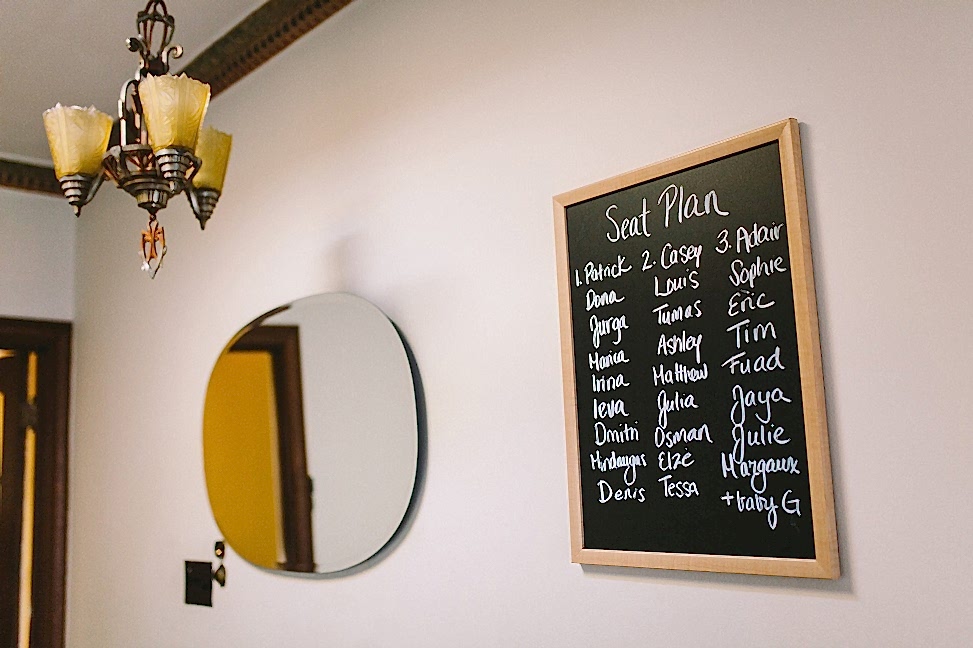 Seat Plan
1. Patrick 2. Casey 3. Adair
Dona Louis Sophie
Jurga Tumas Eric
Marica Ashley Tim
Irina Matthew Fuad
Ieva Julia Jaya
Dmitri Osman Julie
Mindaugas Elze Margaux
Denis Tessa + baby G